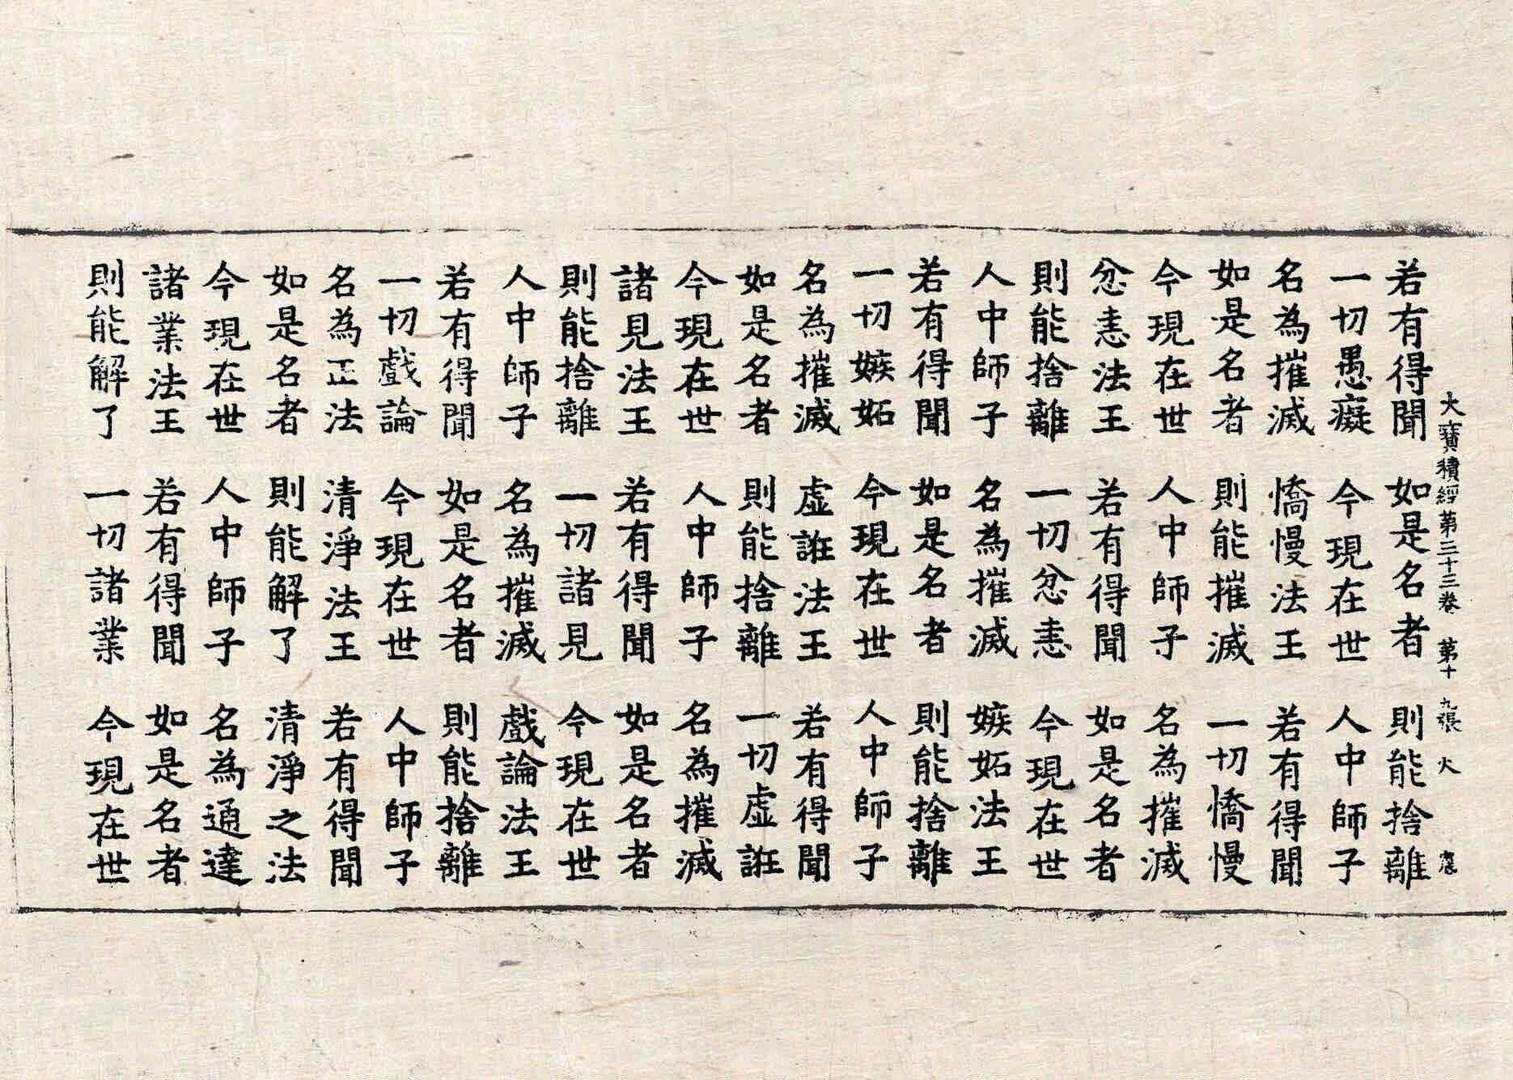 大寶積經第三十三卷 第十九張 火
若有得聞 如是名者 則能捨離
一切愚癡 今現在世 人中師子
名為摧滅 憍慢法王 若有得聞
如是名者 則能摧滅 一切憍慢
今現在世 人中師子 名為摧滅
忿恚法王 若有得聞 如是名者
則能捨離 一切忿恚 今現在世
人中師子 名為摧滅 嫉妬法王
若有得聞 如是名者 則能捨離
一切嫉妬 今現在世 人中師子
名為摧滅 虛誑法王 若有得聞
如是名者 則能捨離 一切虛誑
今現在世 人中師子 名為摧滅
諸見法王 若有得聞 如是名者
則能捨離 一切諸見 今現在世
人中師子 名為摧滅 戲論法王
若有得聞 如是名者 則能捨離
一切戲論 今現在世 人中師子
名為正法 清淨法王 若有得聞
如是名者 則能解了 清淨之法
今現在世 人中師子 名為通達
諸業法王 若有得聞 如是名者
則能解了 一切諸業 今現在世